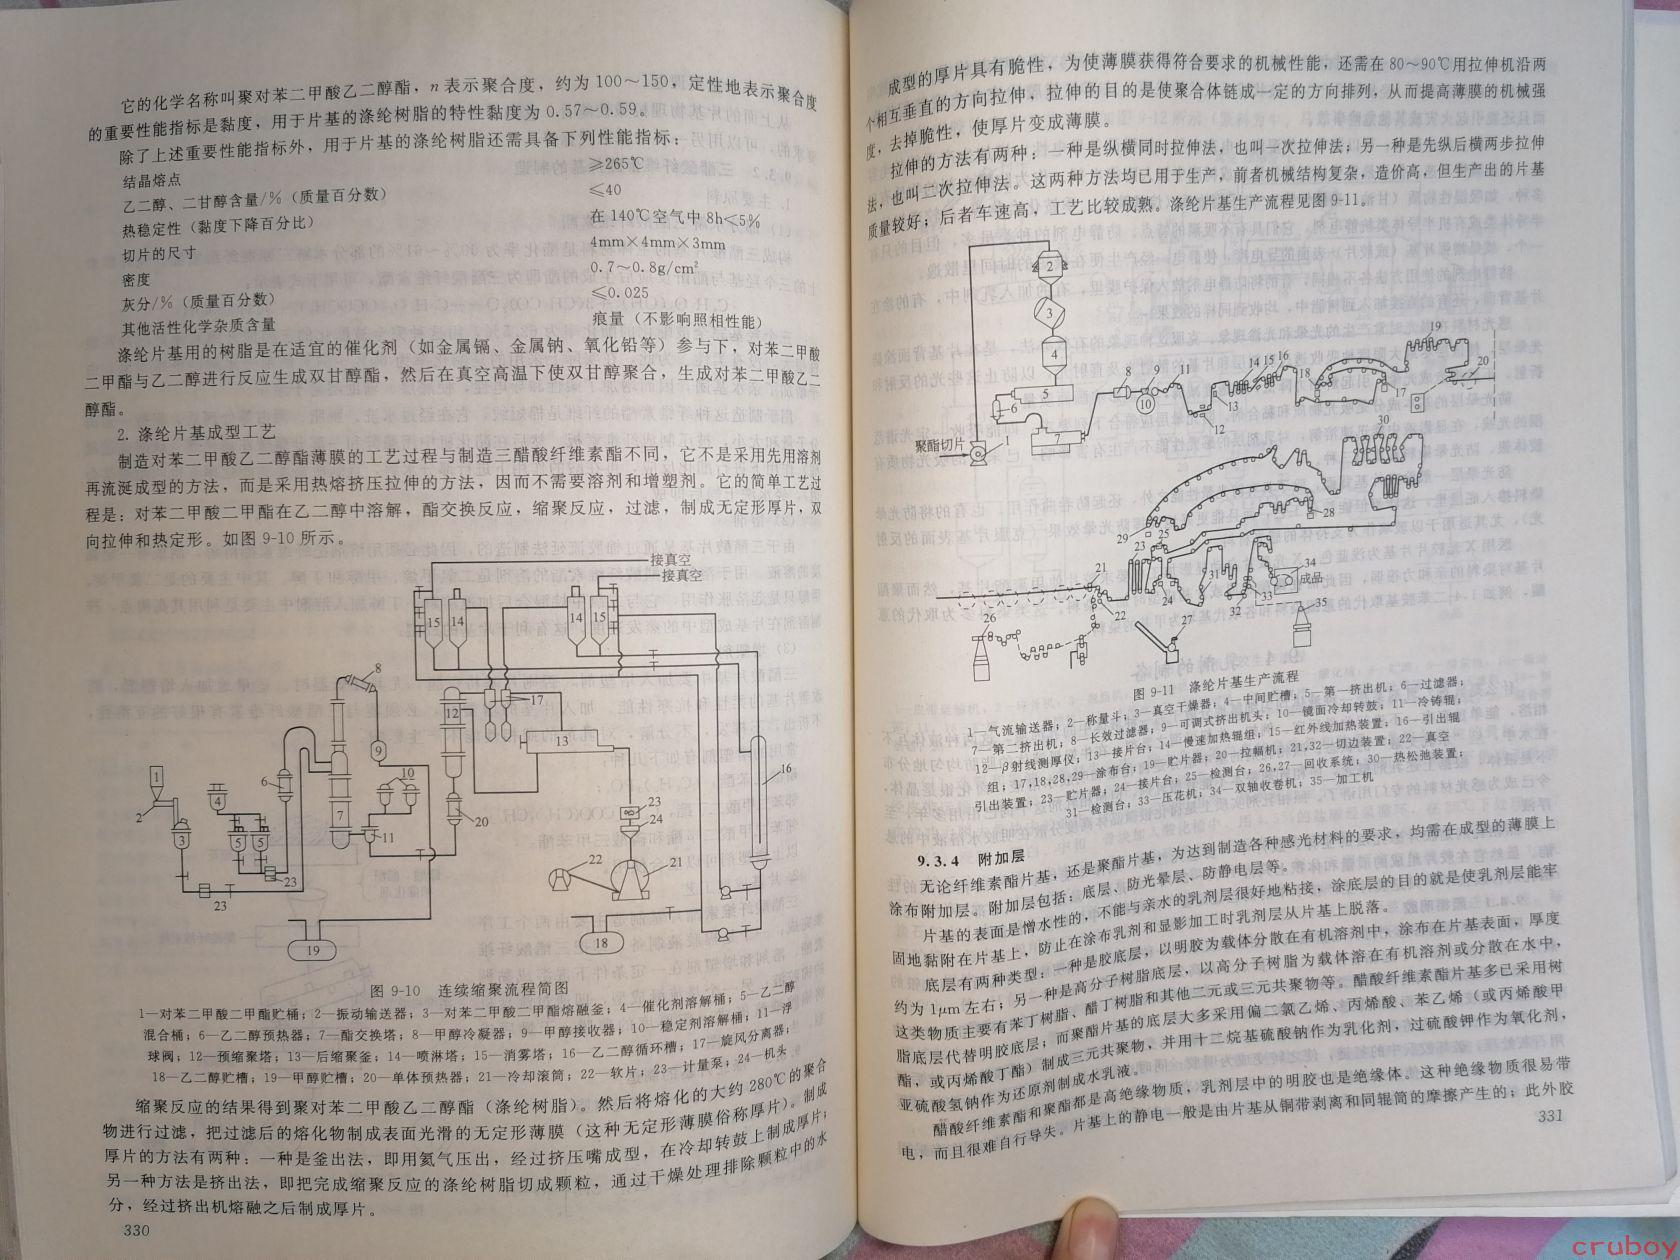 它的化学名称叫聚对苯二甲酸乙二醇酯，n 表示聚合度，约为 100～150，定性地表示聚合度
的重要性能指标是黏度，用于片基的涤纶树脂的特性黏度为 0.57～0.59。
除了上述重要性能指标外，用于片基的涤纶树脂还需具备下列性能指标：
结晶熔点 ≥265℃
乙二醇、二甘醇含量/%（质量百分数） ≤40
热稳定性（黏度下降百分比） 在 140℃空气中 8h<5%
切片的尺寸 4mm×4mm×3mm
密度 0.7～0.8g/cm²
灰分/%（质量百分数） ≤0.025
其他活性化学杂质含量 痕量（不影响照相性能）
涤纶片基用的树脂是在适宜的催化剂（如金属镉、金属钠、氧化铅等）参与下，对苯二甲酸
二甲酯与乙二醇进行反应生成双甘醇酯，然后在真空高温下使双甘醇聚合，生成对苯二甲酸乙二
醇酯。
2. 涤纶片基成型工艺
制造对苯二甲酸乙二醇酯薄膜的工艺过程与制造三醋酸纤维素酯不同，它不是采用先用溶剂
再流涎成型的方法，而是采用热熔挤压拉伸的方法，因而不需要溶剂和增塑剂。它的简单工艺过
程是：对苯二甲酸二甲酯在乙二醇中溶解，酯交换反应，缩聚反应，过滤，制成无定形厚片，双
向拉伸和热定形。如图 9-10 所示。
接真空
接真空
15 14 14 15
8
17
12
13
9
16
1
6
10
2
4
7
3
5 5
11
20
23
24
23
22
21
23
19
18
图 9-10 连续缩聚流程简图
1—对苯二甲酸二甲酯贮桶；2—振动输送器；3—对苯二甲酸二甲酯熔融釜；4—催化剂溶解桶；5—乙二醇
混合桶；6—乙二醇预热器；7—酯交换塔；8—甲醇冷凝器；9—甲醇接收器；10—稳定剂溶解桶；11—浮
球阀；12—预缩聚塔；13—后缩聚釜；14—喷淋塔；15—消雾塔；16—乙二醇循环槽；17—旋风分离器；
18—乙二醇贮槽；19—甲醇贮槽；20—单体预热器；21—冷却滚筒；22—软片；23—计量泵；24—机头
缩聚反应的结果得到聚对苯二甲酸乙二醇酯（涤纶树脂）。然后将熔化的大约 280℃的聚合
物进行过滤，把过滤后的熔化物制成表面光滑的无定形薄膜（这种无定形薄膜俗称厚片）。制成
厚片的方法有两种：一种是釜出法，即用氮气压出，经过挤压嘴成型，在冷却转鼓上制成厚片；
另一种方法是挤出法，即把完成缩聚反应的涤纶树脂切成颗粒，通过干燥处理排除颗粒中的水
分，经过挤出机熔融之后制成厚片。
330
成型的厚片具有脆性，为使薄膜获得符合要求的机械性能，还需在 80～90℃用拉伸机沿两
个相互垂直的方向拉伸，拉伸的目的是使聚合体链成一定的方向排列，从而提高薄膜的机械强
度，去掉脆性，使厚片变成薄膜。
拉伸的方法有两种：一种是纵横同时拉伸法，也叫一次拉伸法；另一种是先纵后横两步拉伸
法，也叫二次拉伸法。这两种方法均已用于生产，前者机械结构复杂，造价高，但生产出的片基
质量较好；后者车速高，工艺比较成熟。涤纶片基生产流程见图 9-11。
2
3
4
5
6
7
聚酯切片
1
8
9
10
11
12
13
14 15 16
17
18
19
20
21
22
23
24
25
26
27
28
29
30
31
32
33
34
成品
35
图 9-11 涤纶片基生产流程
1—气流输送器；2—称量斗；3—真空干燥器；4—中间贮槽；5—第一挤出机；6—过滤器；
7—第二挤出机；8—长效过滤器；9—可调式挤出机头；10—镜面冷却转鼓；11—冷铸辊；
12—β射线测厚仪；13—接片台；14—慢速加热辊组；15—红外线加热装置；16—引出辊
组；17,18,28,29—涂布台；19—贮片器；20—拉幅机；21,32—切边装置；22—真空
引出装置；23—贮片器；24—接片台；25—检测台；26,27—回收系统；30—热松弛装置；
31—检测台；33—压花机；34—双轴收卷机；35—加工机
9.3.4 附加层
无论纤维素酯片基，还是聚酯片基，为达到制造各种感光材料的要求，均需在成型的薄膜上
涂布附加层。附加层包括：底层、防光晕层、防静电层等。
片基的表面是憎水性的，不能与亲水的乳剂层很好地粘接，涂底层的目的就是使乳剂层能牢
固地黏附在片基上，防止在涂布乳剂和显影加工时乳剂层从片基上脱落。
底层有两种类型：一种是胶底层，以明胶为载体分散在有机溶剂中，涂布在片基表面，厚度
约为 1μm 左右；另一种是高分子树脂底层，以高分子树脂为载体溶在有机溶剂或分散在水中，
这类物质主要有苯丁树脂、醋丁树脂和其他二元或三元共聚物等。醋酸纤维素酯片基多已采用树
脂底层代替明胶底层；而聚酯片基的底层大多采用偏二氯乙烯、丙烯酸、苯乙烯（或丙烯酸甲
酯，或丙烯酸丁酯）制成三元共聚物，并用十二烷基硫酸钠作为乳化剂，过硫酸钾作为氧化剂，
亚硫酸氢钠作为还原剂制成水乳液。
醋酸纤维素酯和聚酯都是高绝缘物质，乳剂层中的明胶也是绝缘体。这种绝缘物质很易带
电，而且很难自行导失。片基上的静电一般是由片基从铜带剥离和同辊筒的摩擦产生的；此外胶
331
cruboy